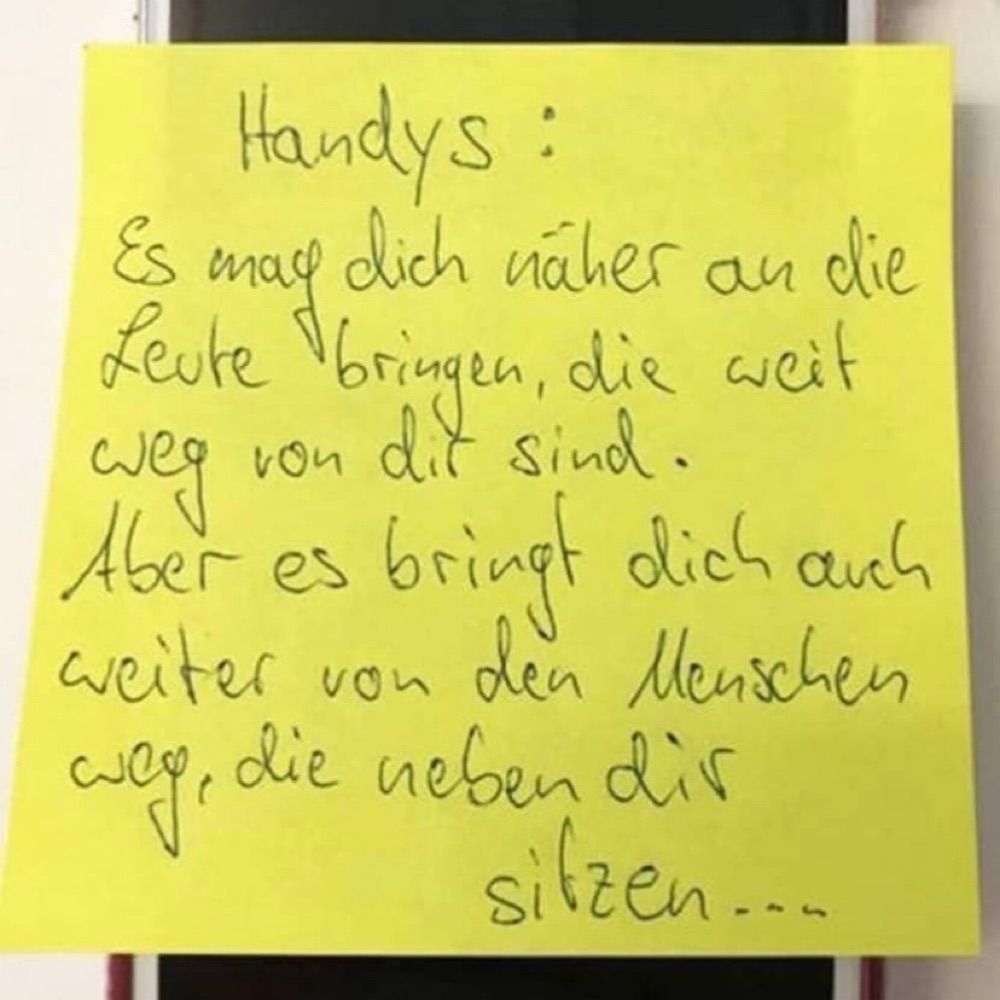 Handys :
Es mag dich näher an die
Leute bringen, die weit
weg von dir sind.
Aber es bringt dich auch
weiter von den Menschen
weg, die neben dir
sitzen....